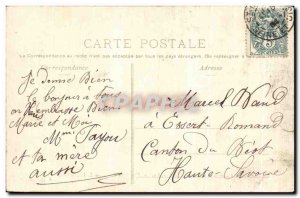 CARTE POSTALE
La Correspondance au recto n'est pas acceptée par tous les pays étrangers. (Se renseigner à la Poste)
Correspondance
Adresse
Je donne Bien
le bonjour à Tous
on embrasse Bien
Marie et Moi
Mme Jayou
et sa mère
aussi
Marcel
à Essert-Romand
Canton du Biot
Haute-Savoie